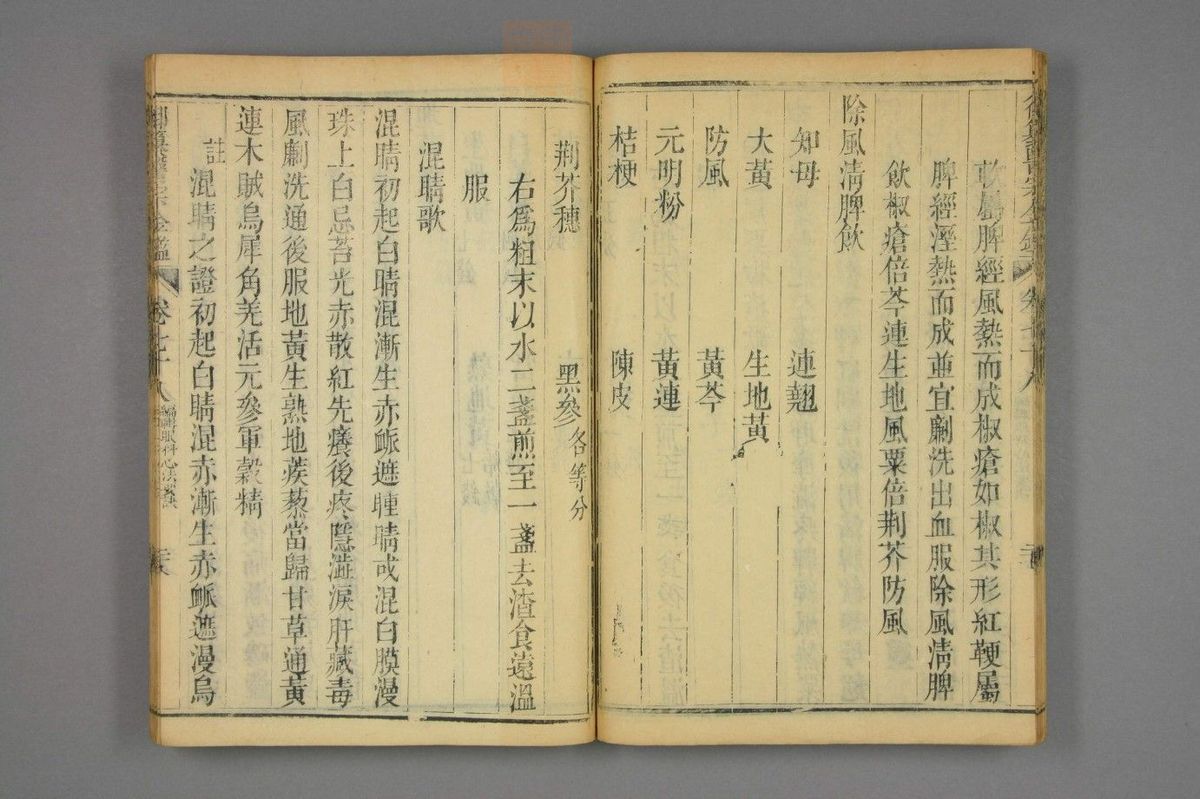 軟屬脾經風熱而成椒瘡如椒其形紅鞕屬
脾經溼熱而成並宜劆洗出血服除風淸脾
飲椒瘡倍芩連生地風粟倍荆芥防風
除風淸脾飲
知母 連翹
大黃 生地黃
防風 黃芩
元明粉 黃連
桔梗 陳皮
荆芥穗 黑參各等分
右爲粗末以水二盞煎至一盞去渣食遠溫
服
混睛歌
混睛初起白睛混漸生赤脈遮瞳睛或混白膜漫
珠上白忌苔光赤散紅先癢後疼隱澁淚肝藏毒
風劆洗通後服地黃生熟地蒺蔾當歸甘草通黃
連木賊烏犀角羌活元參軍穀精
註
混睛之證初起白睛混赤漸生赤脈遮漫烏
卷七十八